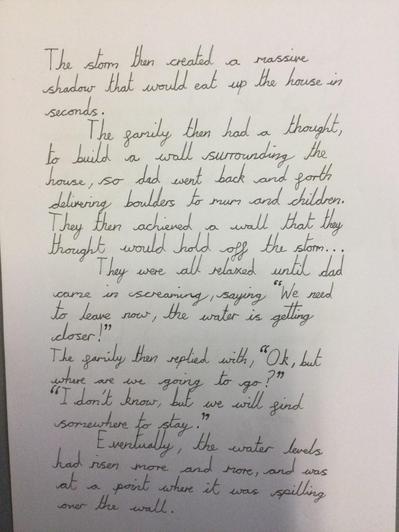 The storm then created a massive
shadow that would eat up the house in
seconds.
The family then had a thought,
to build a wall surrounding the
house, so dad went back and forth
delivering boulders to mum and children.
They then achieved a wall that they
thought would hold off the storm...
They were all relaxed until dad
came in screaming, saying "We need
to leave now, the water is getting
closer!"
The family then replied with, "Ok, but
where are we going to go?"
"I don't know, but we will find
somewhere to stay."
Eventually, the water levels
had risen more and more, and was
at a point where it was spilling
over the wall.